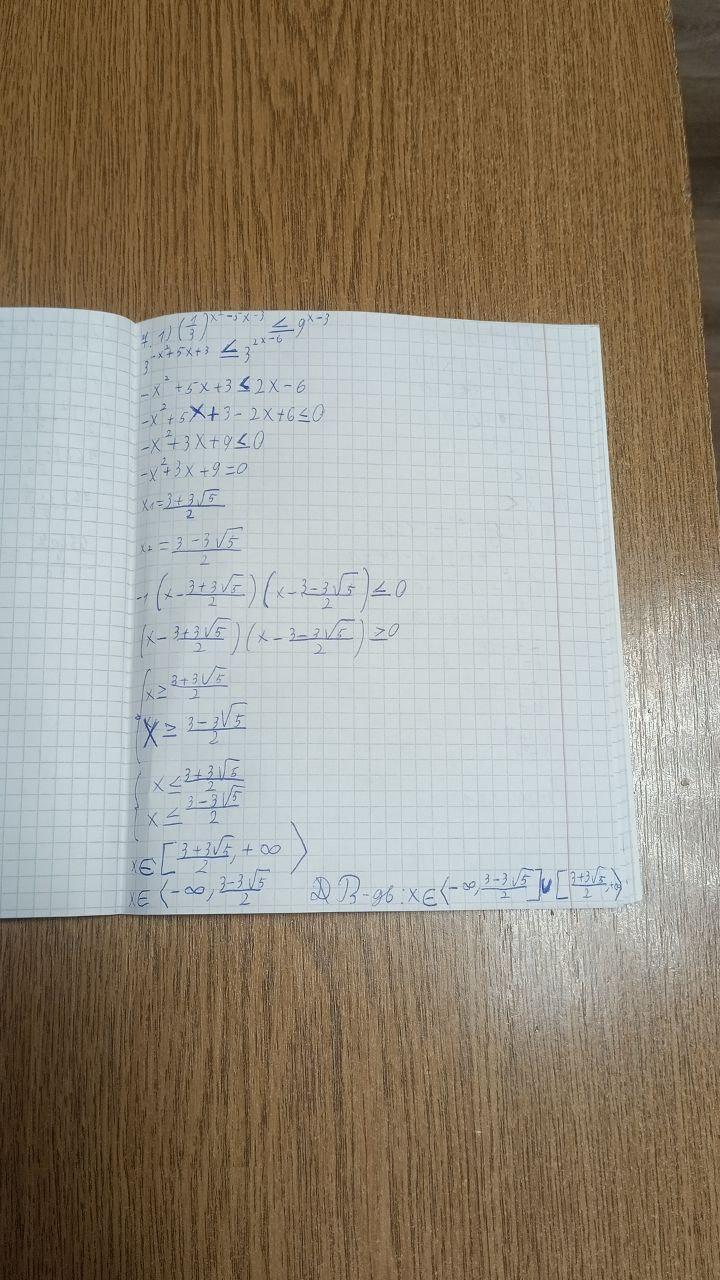 7. 1) (1/3)^(x²-5x-3) ≤ 9^(x-3)
3^(-x²+5x+3) ≤ 3^(2x-6)
-x²+5x+3≤2x-6
-x²+5x+3-2x+6≤0
-x²+3x+9≤0
-x²+3x+9=0
x₁=(3+3√5)/2
x₂=(3-3√5)/2
-1(x-(3+3√5)/2)(x-(3-3√5)/2)≤0
(x-(3+3√5)/2)(x-(3-3√5)/2)≥0
{x≥(3+3√5)/2
{x≥(3-3√5)/2
{x≤(3+3√5)/2
{x≤(3-3√5)/2
x∈[(3+3√5)/2,+∞⟩
x∈⟨-∞,(3-3√5)/2
В-дь: x∈⟨-∞,(3-3√5)/2]∪[(3+3√5)/2,+∞⟩